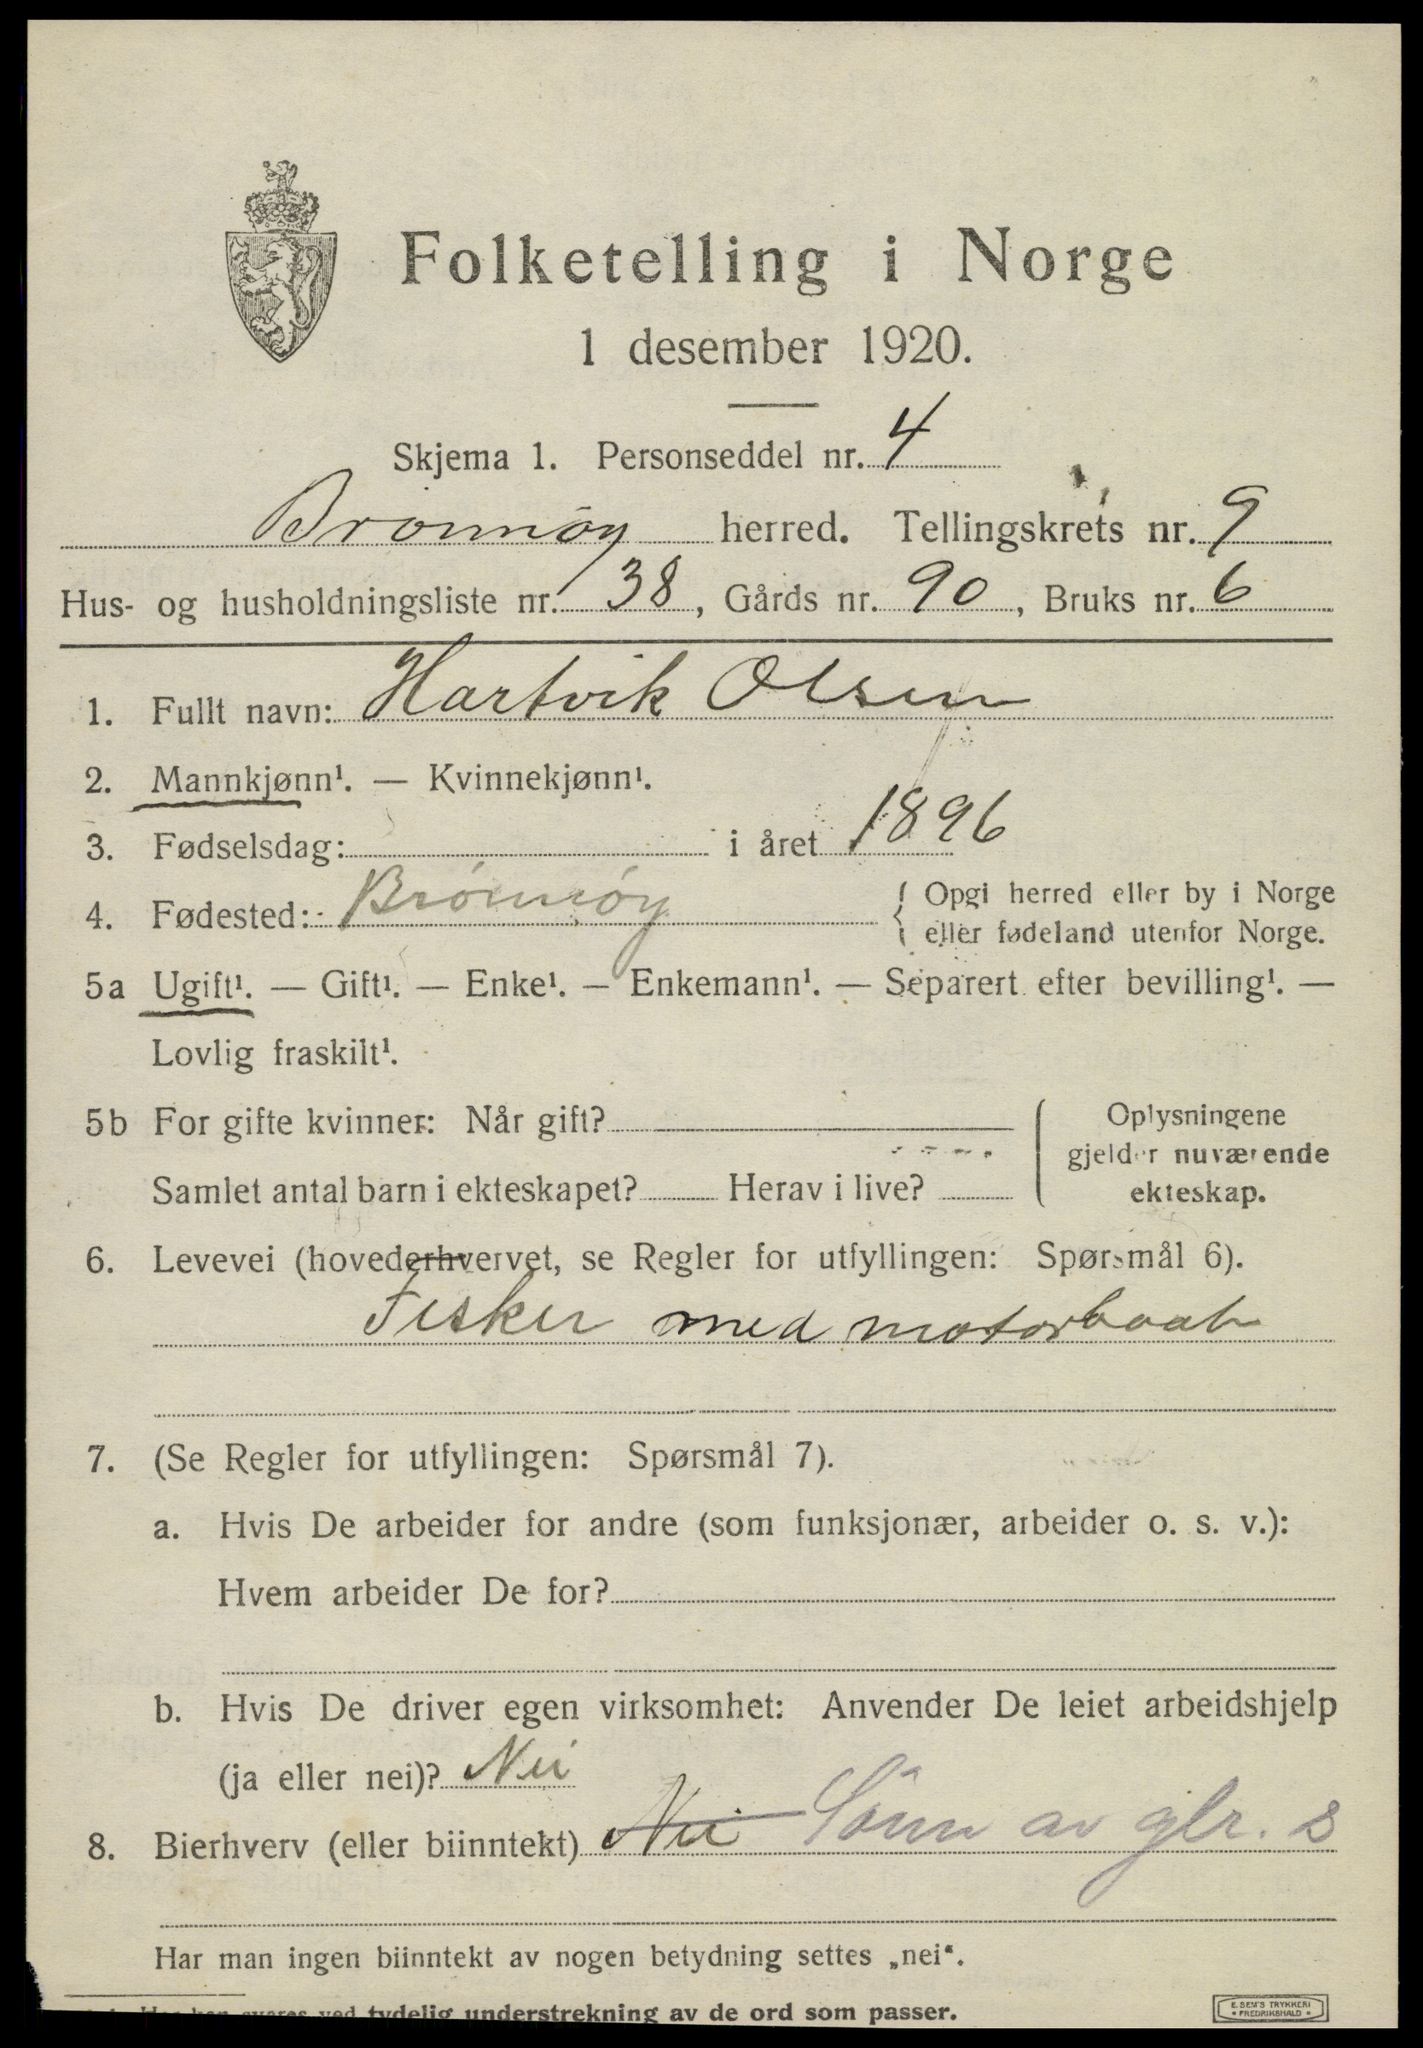 Folketelling i Norge
1 desember 1920.
Skjema 1. Personseddel nr. 4
Brønnøy herred. Tellingskrets nr. 9
Hus- og husholdningsliste nr. 38, Gårds nr. 90, Bruks nr. 6
1. Fullt navn: Hartvik Olsen
2. Mannkjønn¹. — Kvinnekjønn¹.
3. Fødselsdag: i året 1896
4. Fødested: Brönnöy { Opgi herred eller by i Norge
eller fødeland utenfor Norge.
5a Ugift¹. — Gift¹. — Enke¹. — Enkemann¹. — Separert efter bevilling¹. —
Lovlig fraskilt¹.
5b For gifte kvinner: Når gift?
Samlet antal barn i ekteskapet? Herav i live?
Oplysningene
gjelder nuværende
ekteskap.
6. Levevei (hovederhvervet, se Regler for utfyllingen: Spørsmål 6).
Fisker med motorbaat
7. (Se Regler for utfyllingen: Spørsmål 7).
a. Hvis De arbeider for andre (som funksjonær, arbeider o. s. v.):
Hvem arbeider De for?
b. Hvis De driver egen virksomhet: Anvender De leiet arbeidshjelp
(ja eller nei)? Nei
8. Bierhverv (eller biinntekt) Nei Sönn av gbr. s
Har man ingen biinntekt av nogen betydning settes „nei“.
¹ Her kan svares ved tydelig understrekning av de ord som passer.
E. SEM'S TRYKKERI
FREDRIKSHALD